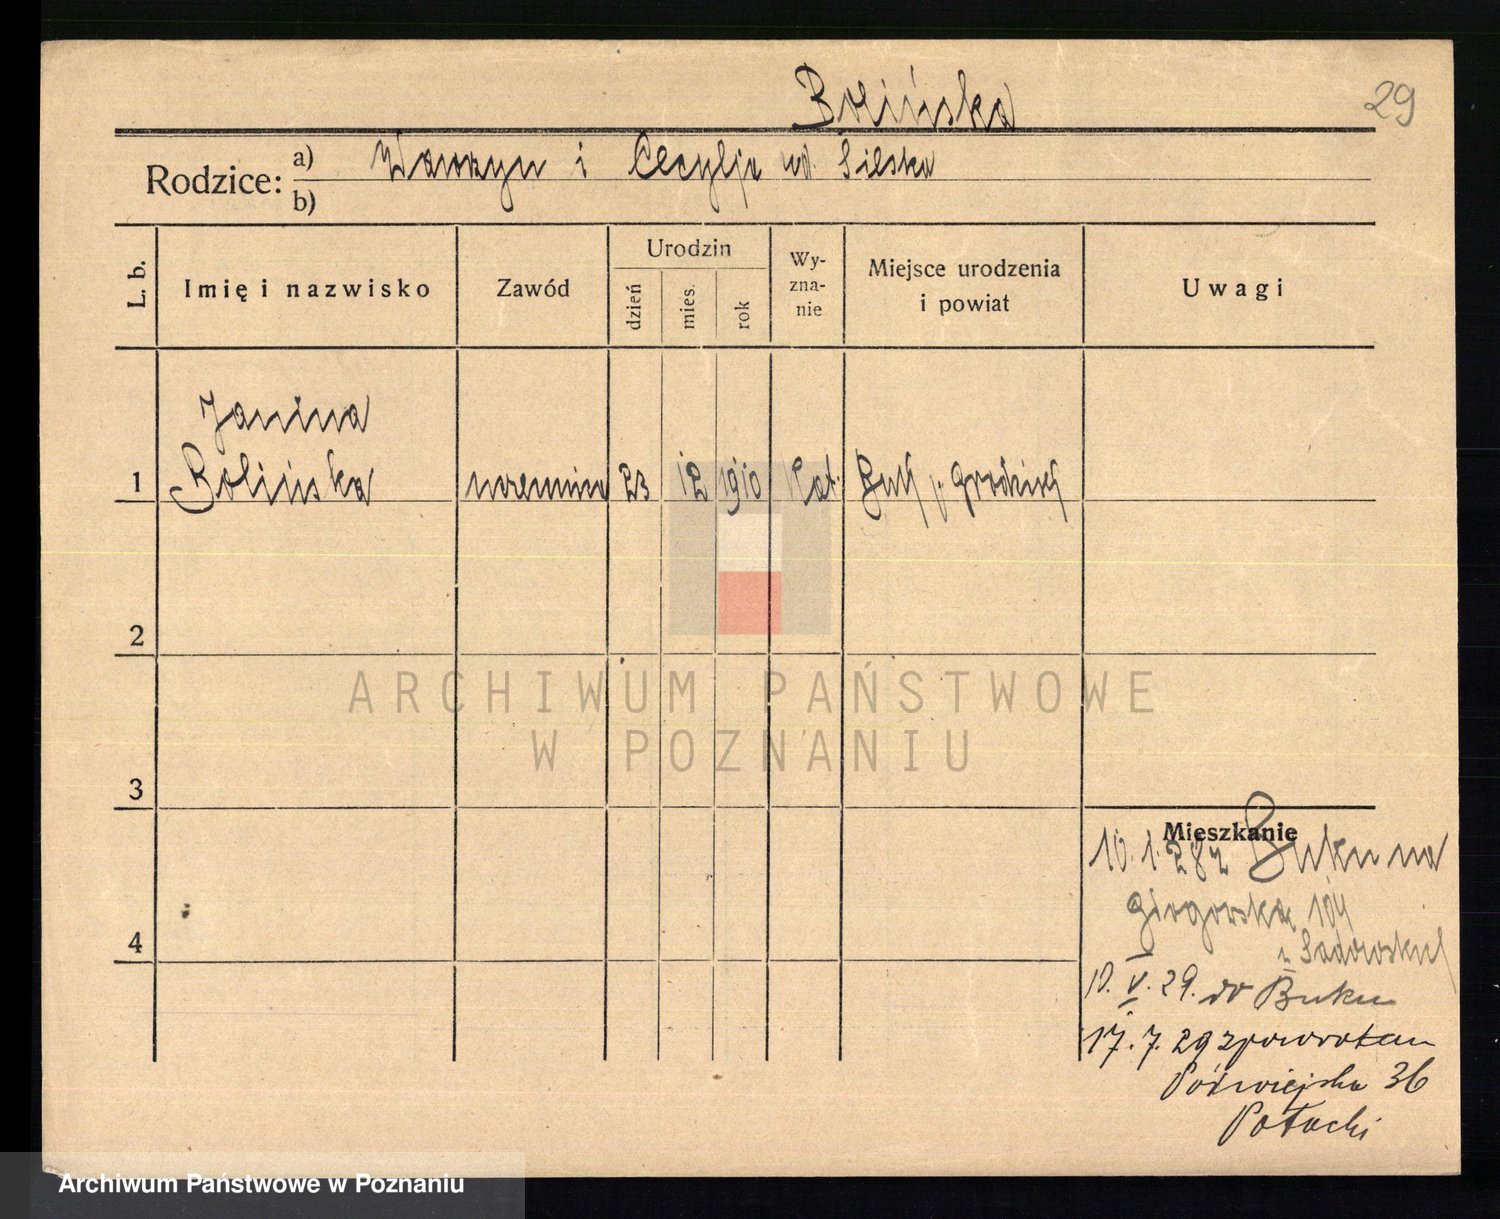 Bolińska
29
Rodzice: a) Wawrzyn i Cecylja ud. Silska
b)
L. b.
Imię i nazwisko
Zawód
Urodzin
dzień
mies.
rok
Wy-
zna-
nie
Miejsce urodzenia
i powiat
Uwagi
Janina
1 Bolińska uczennica 23 12 1910 Kat. Buk p. Grodzisk
2
3
4
Mieszkanie
10. 1. 28 z Buku na
104
u Sadowskich
10. V. 29. do Buku
17. 7. 29 zpowrotem
Półwiejska 36
Potocki
ARCHIWUM PAŃSTWOWE
W POZNANIU
Archiwum Państwowe w Poznaniu